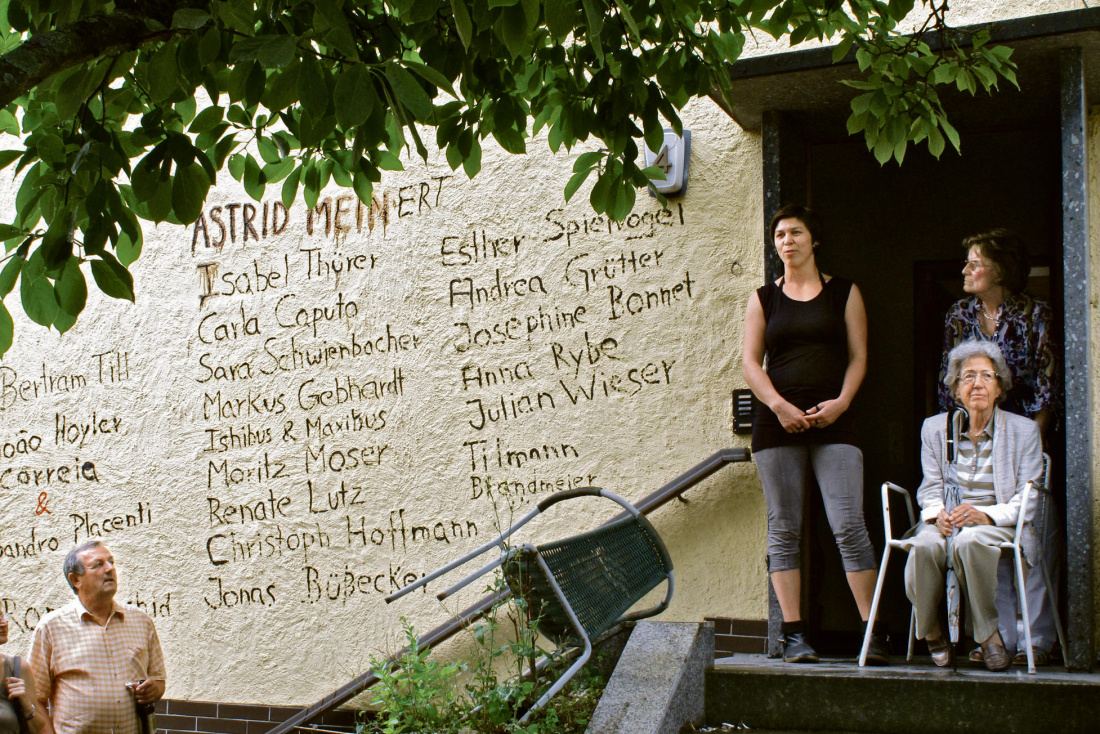 4
ASTRID MEINERT
Isabel Thürer
Carla Caputo
Sara Schwienbacher
Markus Gebhardt
Ishibus & Maxibus
Moritz Moser
Renate Lutz
Christoph Hoffmann
Jonas Büßecker
Esther Spielvogel
Andrea Grütter
Josephine Bonnet
Anna Rybe
Julian Wieser
Tilmann
Brandmeier
Bertram Till
Hoyler
Correia
&
Placenti